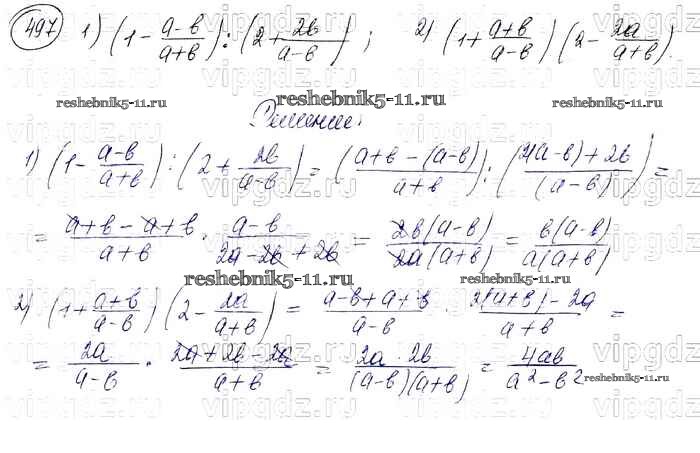 497 1) (1 - (a-b)/(a+b)) : (2 + 2b/(a-b)) ; 2) (1 + (a+b)/(a-b)) (2 - 2a/(a+b)).
reshebnik5-11.ru reshebnik5-11.ru reshebnik5-11.ru
Решение:
1) (1 - (a-b)/(a+b)) : (2 + 2b/(a-b)) = ((a+b-(a-b))/(a+b)) : ((2(a-b)+2b)/(a-b)) =
= (a+b-a+b)/(a+b) · (a-b)/(2a-2b+2b) = 2b(a-b)/2a(a+b) = b(a-b)/a(a+b)
reshebnik5-11.ru
2) (1 + (a+b)/(a-b)) (2 - 2a/(a+b)) = (a-b+a+b)/(a-b) · (2(a+b)-2a)/(a+b) =
= 2a/(a-b) · (2a+2b-2a)/(a+b) = 2a·2b/(a-b)(a+b) = 4ab/(a²-b²)
reshebnik5-11.ru
vipgdz